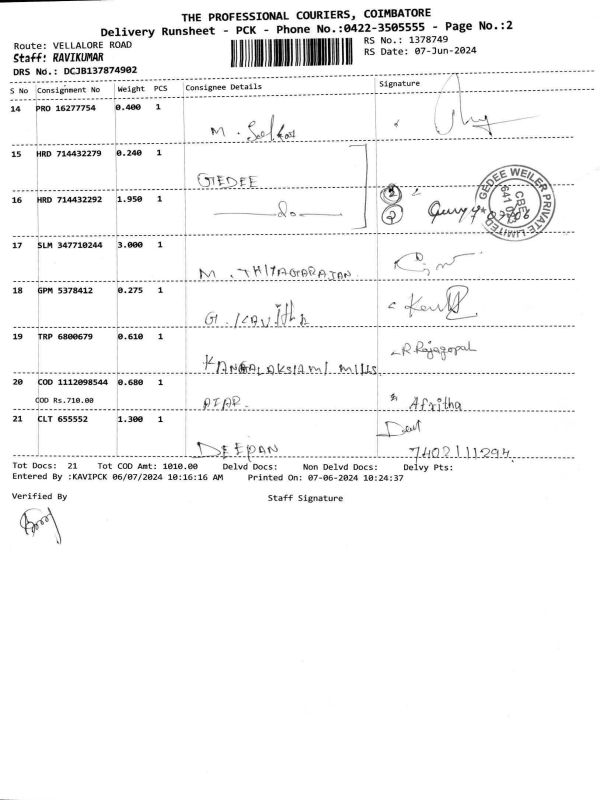 THE PROFESSIONAL COURIERS, COIMBATORE
Delivery Runsheet - PCK - Phone No.:0422-3505555 - Page No.:2
Route: VELLALORE ROAD RS No.: 1378749
Staff: RAVIKUMAR RS Date: 07-Jun-2024
DRS No.: DCJB137874902
S No Consignment No Weight PCS Consignee Details Signature
14 PRO 16277754 0.400 1
M.
15 HRD 714432279 0.240 1
GEDEE
16 HRD 714432292 1.950 1
do
GEDEE WEILER PRIVATE LIMITED
CBE
17 SLM 347710244 3.000 1
M. THIYAGARAJAN
18 GPM 5378412 0.275 1
G. KAVITHA
19 TRP 6800679 0.610 1
R Rajagopal
MILLS
20 COD 1112098544 0.680 1
COD Rs.710.00
Afritha
21 CLT 655552 1.300 1
DEEPAN
7402111294
Tot Docs: 21 Tot COD Amt: 1010.00 Delvd Docs: Non Delvd Docs: Delvy Pts:
Entered By :KAVIPCK 06/07/2024 10:16:16 AM Printed On: 07-06-2024 10:24:37
Verified By Staff Signature